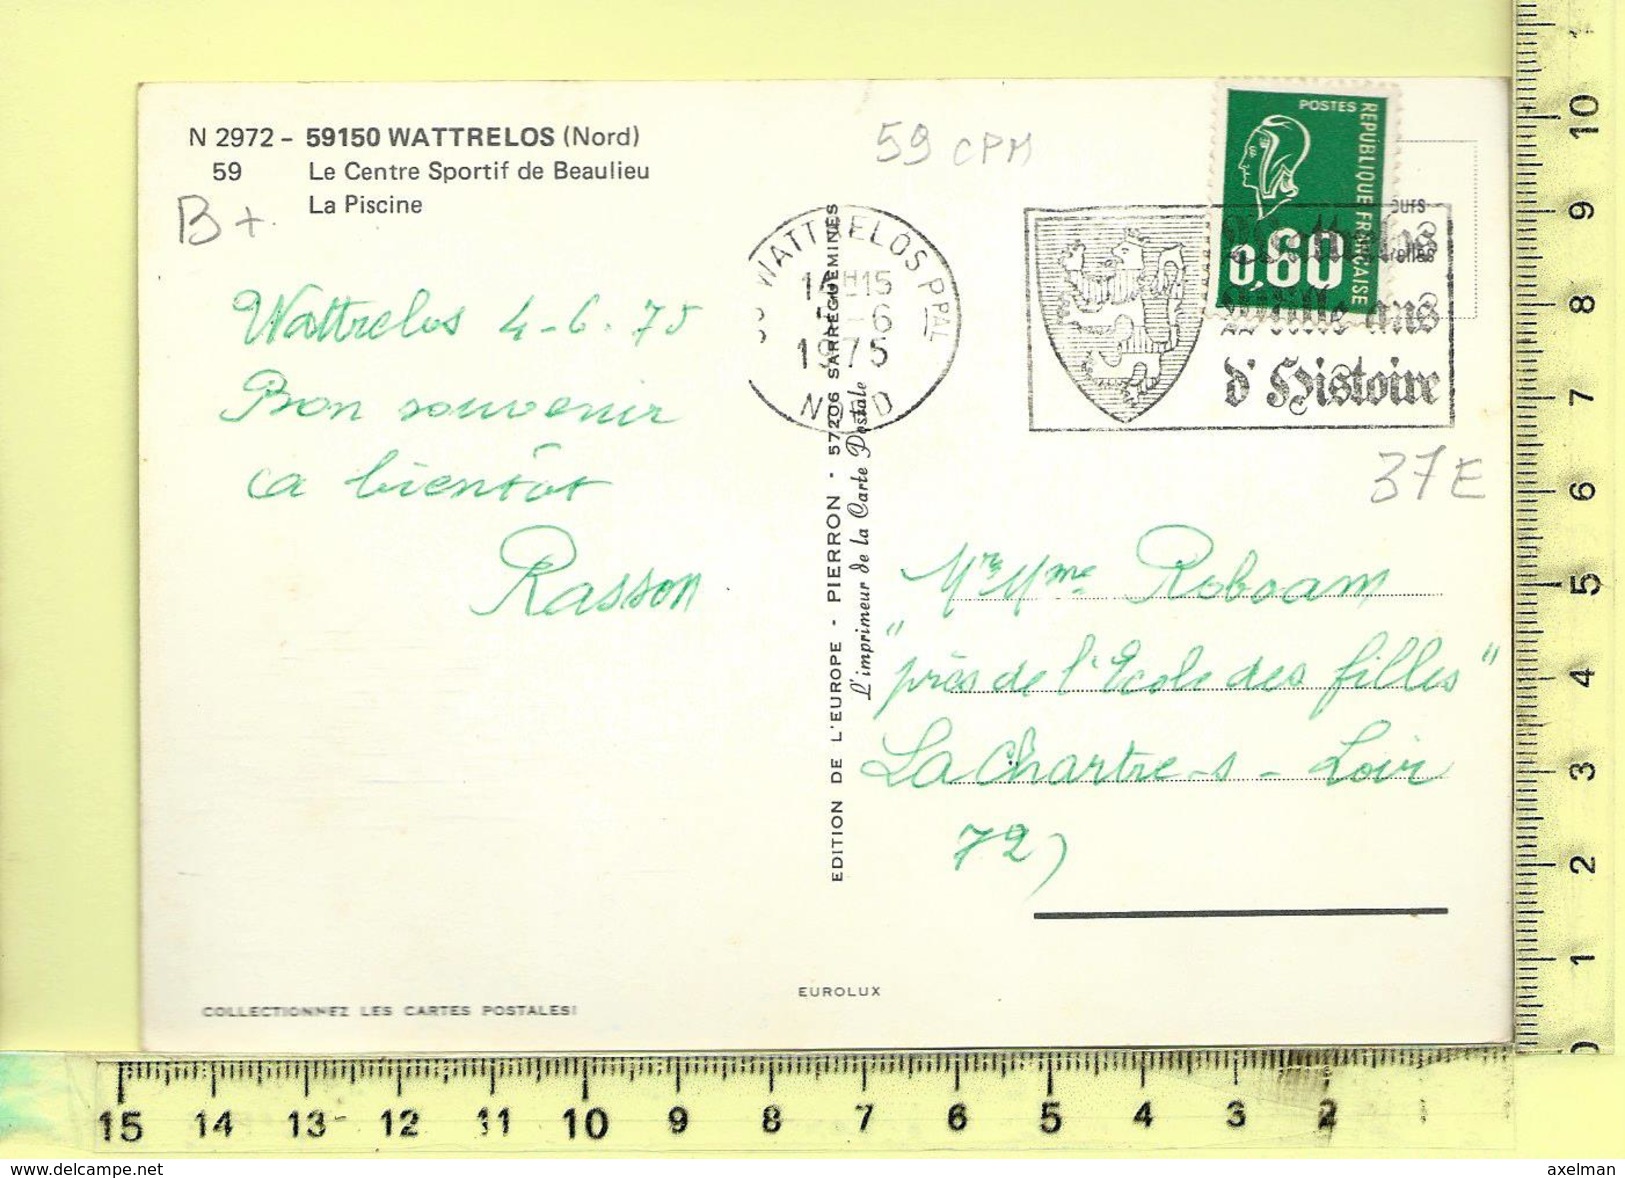 N 2972 - 59150 WATTRELOS (Nord)
59 Le Centre Sportif de Beaulieu
La Piscine
B+
59 CPM
POSTES
REPUBLIQUE FRANCAISE
0,60
WATTRELOS PPAL
15
5-6
1975
NORD
Wattrelos
Mille ans
d'Histoire
37E
Wattrelos 4-6.75
Bon souvenir
ca bientôt
Rasson
EDITION DE L'EUROPE - PIERRON - 57206 SARREGUEMINES
L'imprimeur de la Carte Postale
Mr Mme Roboam
"près de l'Ecole des filles"
La Chartre-s-Loir
72)
EUROLUX
COLLECTIONNEZ LES CARTES POSTALES!
10
9
8
7
6
5
4
3
2
1
0
15 14 13 12 11 10 9 8 7 6 5 4 3 2
www.delcampe.net
axelman